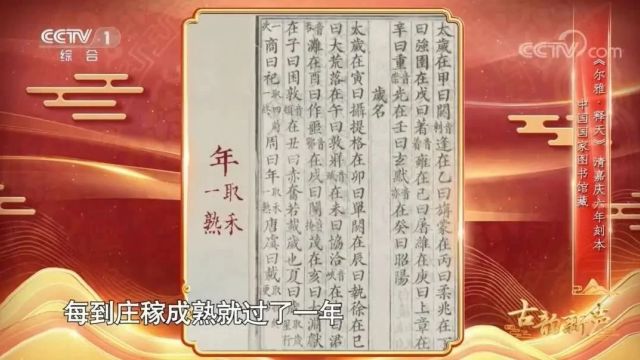 CCTV 1
综合
CCTV.com 央视网
《尔雅·释天》清嘉庆六年刻本
中国国家图书馆藏
太歲在甲曰閼逢在乙曰旃蒙在丙曰柔兆在丁
曰強圉在戊曰著雍在己曰屠維在庚曰上章在
辛曰重光在壬曰玄黓在癸曰昭陽
歲名
太歲在寅曰攝提格在卯曰單閼在辰曰執徐在巳
曰大荒落在午曰敦牂在未曰協洽在申曰涒
灘在酉曰作噩在戌曰閹茂在亥曰大淵獻
在子曰困敦在丑曰赤奮若載歲也夏曰歲
商曰祀周曰年唐虞曰載
年 取禾一熟
每到庄稼成熟就过了一年
古韵新声